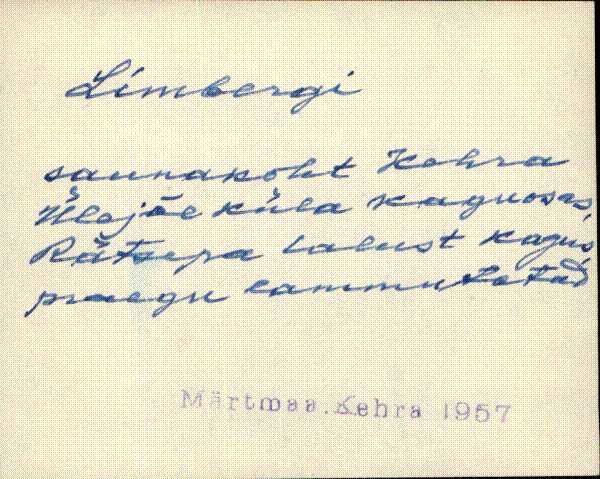 Limbergi
saunakoht Kehra
Ülejõe küla kaguosas,
Rätsepa talust kagus
praegu lammutatud
Märtmaa. Kehra 1957